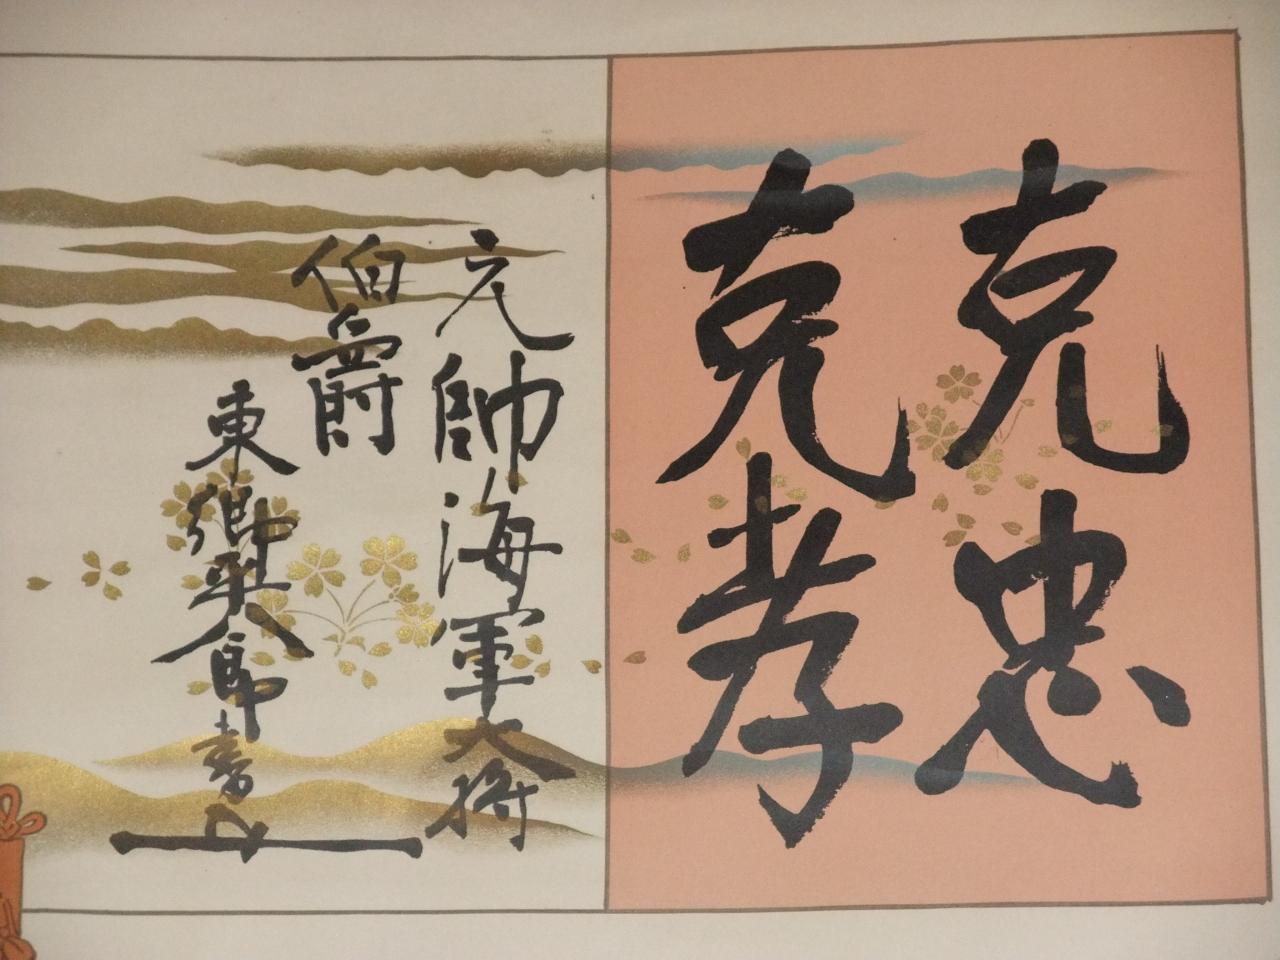 克忠
克孝
元帥海軍大将
伯爵
東郷平八郎書